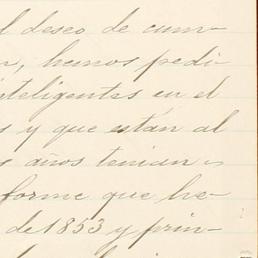 l deseo de cum-
n, hemos pedi-
nteligentes en el
s y que están al
s años tenian
forme que he-
de 1853 y prin-